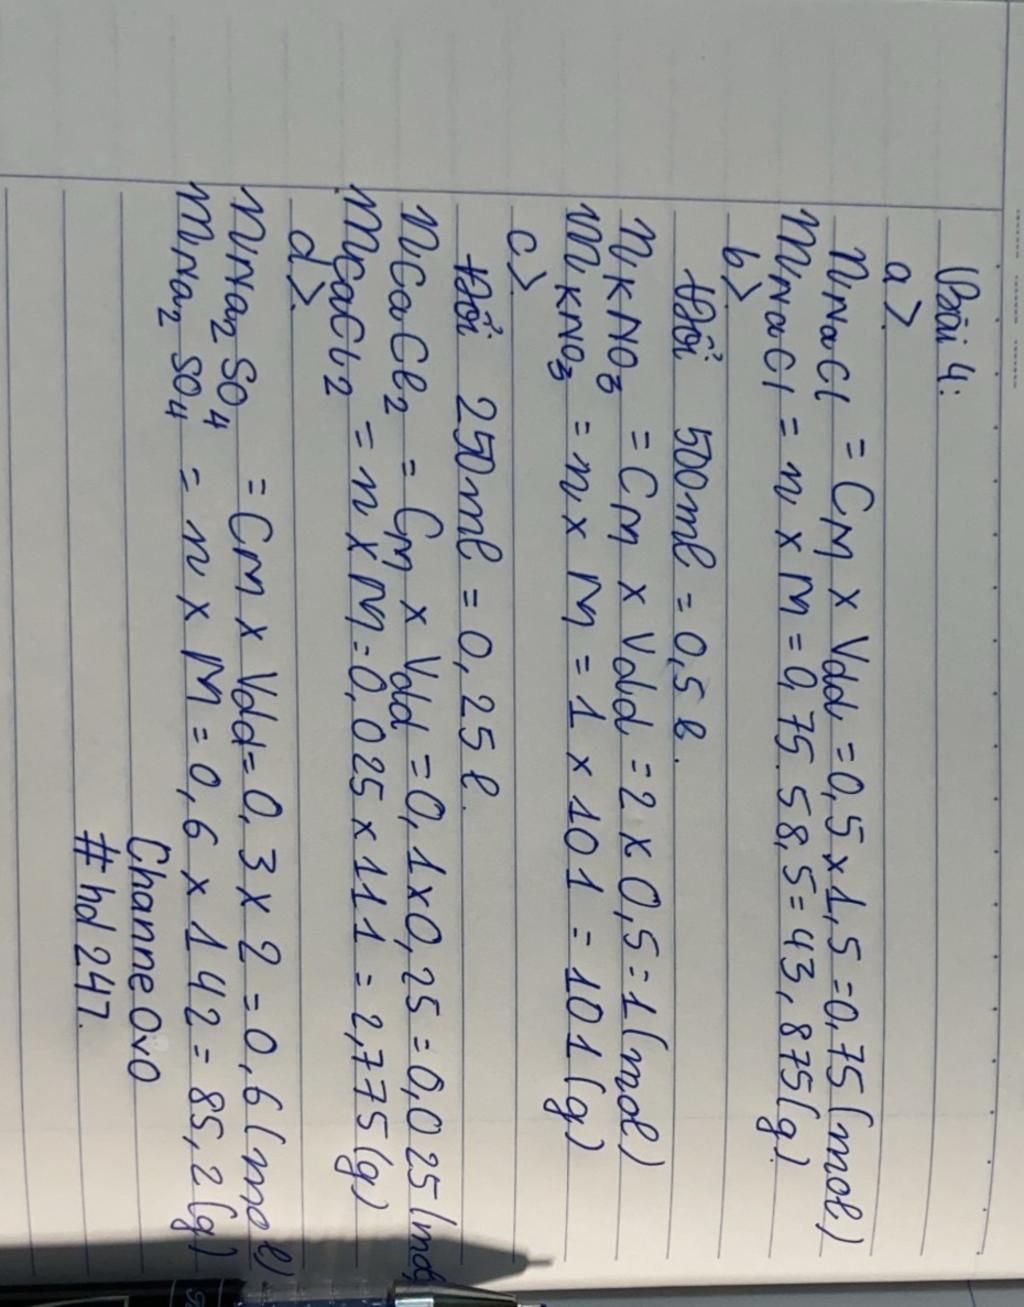 Bài 4:
a>
nNaCl = CM x Vdd = 0,5 x 1,5 = 0,75 (mol)
mNaCl = n x M = 0,75 . 58,5 = 43,875 (g)
b>
Đổi 500ml = 0,5 l.
nKNO3 = CM x Vdd = 2 x 0,5 = 1 (mol)
mKNO3 = n x M = 1 x 101 = 101 (g)
c>
Đổi 250ml = 0,25 l.
nCaCl2 = CM x Vdd = 0,1 x 0,25 = 0,025 (mol)
mCaCl2 = n x M = 0,025 x 111 = 2,775 (g)
d>
nNa2SO4 = CM x Vdd = 0,3 x 2 = 0,6 (mol)
mNa2SO4 = n x M = 0,6 x 142 = 85,2 (g)
Channe0v0
#hd247.